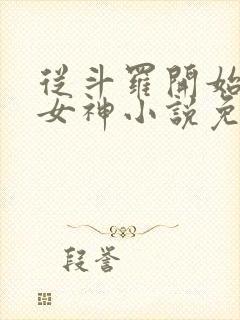 從斗羅開始
女神小說免
段譽